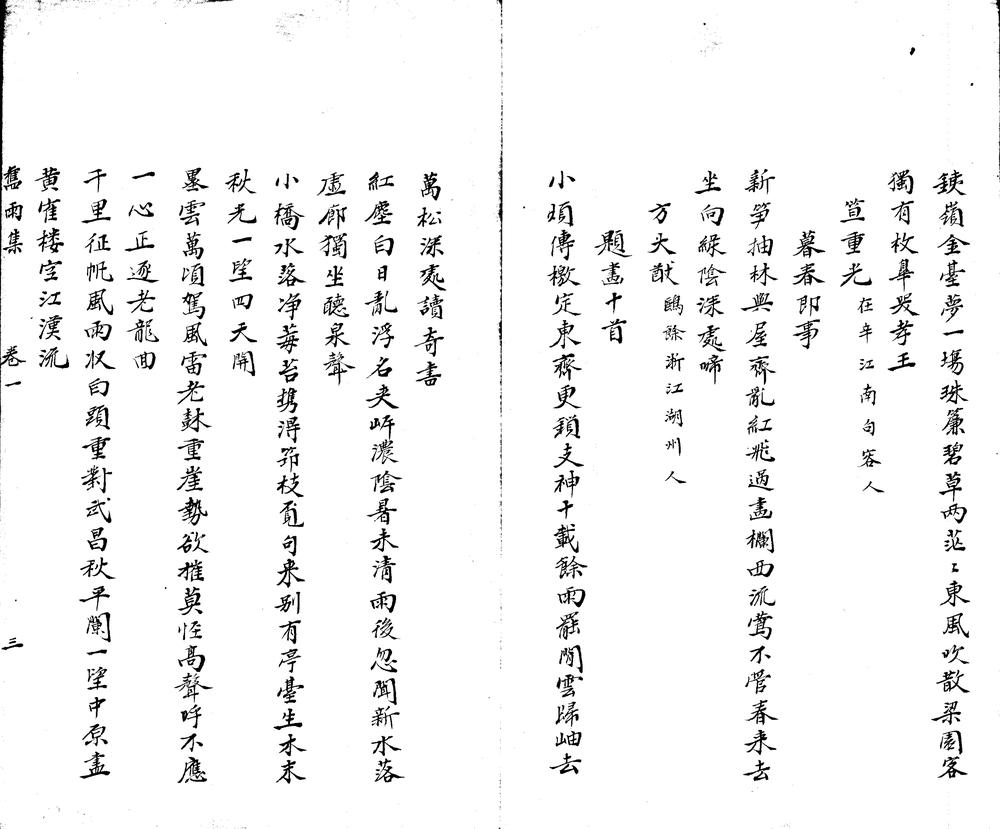 鐵嶺金臺夢一場珠簾碧草兩茫〻東風吹散梁園客
獨有枚臯哭孝王
笪重光在辛江南句容人
暮春即事
新笋抽林與屋齊亂紅飛過畫欄西流鶯不管春来去
坐向綠陰深處啼
方大猷鷗餘浙江湖州人
題畫十首
小項傳檄定東齊更鎖支神十載餘雨罷閒雲歸岫去
萬松深處讀奇書
紅塵白日亂浮名夹岍濃陰暑未清雨後忽聞新水落
虛廊獨坐聽泉聲
小橋水落净莓苔携得笻枝覓句来别有亭臺生木末
秋光一望四天開
墨雲萬頃駕風雷老𣗳重崖勢欲摧莫怪高聲呼不應
一心正逐老龍回
千里征帆風雨収白頭重對武昌秋平闌一望中原盡
黄隺楼空江漢流
舊雨集 卷一 三